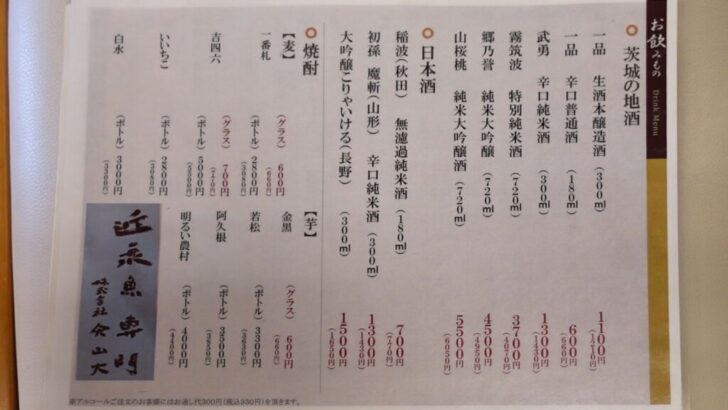 お飲みもの Drink Menu
茨城の地酒
一品 生酒本醸造酒(300ml) 1100円(1210円)
一品 辛口普通酒(180ml) 600円(660円)
武勇 辛口純米酒(300ml) 1300円(1430円)
霧筑波 特別純米酒(720ml) 3700円(4070円)
郷乃誉 純米大吟醸(720ml) 4500円(4950円)
山桜桃 純米大吟醸酒(720ml) 5500円(6050円)
日本酒
稲波(秋田) 無濾過純米酒(180ml) 700円(770円)
初孫 魔斬(山形) 辛口純米酒(300ml) 1300円(1430円)
大吟醸こりゃいける(長野)(300ml) 1500円(1650円)
焼酎
【麦】
一番札 (グラス)600円(660円)
(ボトル)2800円(3080円)
吉四六 (グラス)700円(770円)
(ボトル)5000円(5500円)
いいちこ (ボトル)2800円(3080円)
白水 (ボトル)3000円(3300円)
【芋】
金黒 (グラス)600円(660円)
若松 (ボトル)3300円(3630円)
阿久根 (ボトル)3500円(3850円)
明るい農村 (ボトル)4000円(4400円)
近系魚専門
株式会社 山大
※アルコールご注文のお客様にはお通し代300円(税込330円)を頂きます。